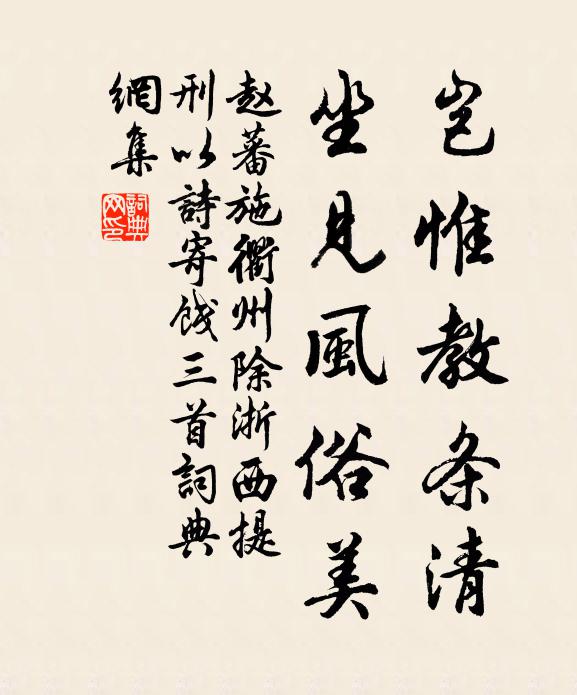 岂惟教条清
坐见风俗美
赵蕃施衢州除浙西提
刑以詩寄餞三首詞典
網集
詞典網印